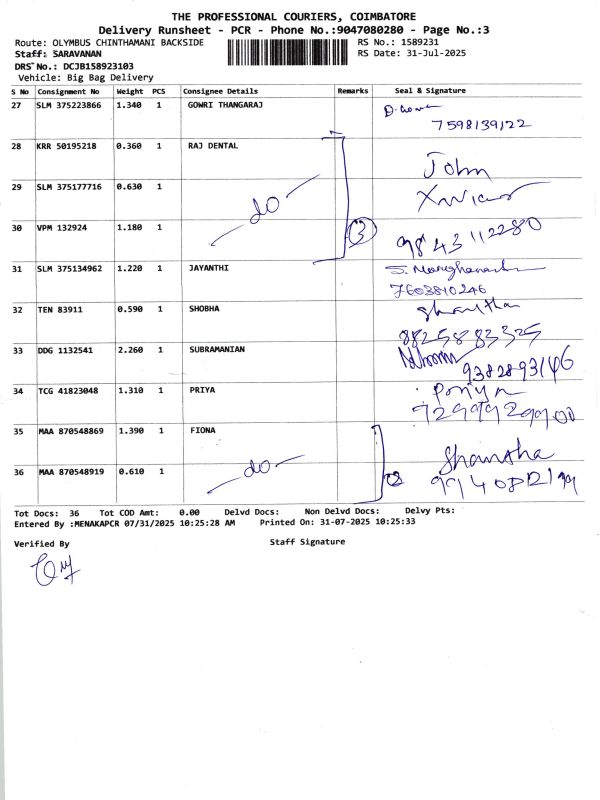 THE PROFESSIONAL COURIERS, COIMBATORE
Delivery Runsheet - PCR - Phone No.:9047080280 - Page No.:3
Route: OLYMBUS CHINTHAMANI BACKSIDE RS No.: 1589231
Staff: SARAVANAN RS Date: 31-Jul-2025
DRS No.: DCJB158923103
Vehicle: Big Bag Delivery
S No Consignment No Weight PCS Consignee Details Remarks Seal & Signature
27 SLM 375223866 1.340 1 GOWRI THANGARAJ
7598139122
28 KRR 50195218 0.360 1 RAJ DENTAL
John
29 SLM 375177716 0.630 1
do
30 VPM 132924 1.180 1 3 9843112280
31 SLM 375134962 1.220 1 JAYANTHI
7603810246
32 TEN 83911 0.590 1 SHOBHA
8825883325
33 DDG 1132541 2.260 1 SUBRAMANIAN
9382893146
34 TCG 41823048 1.310 1 PRIYA Priya
35 MAA 870548869 1.390 1 FIONA
do
36 MAA 870548919 0.610 1 2
Tot Docs: 36 Tot COD Amt: 0.00 Delvd Docs: Non Delvd Docs: Delvy Pts:
Entered By :MENAKAPCR 07/31/2025 10:25:28 AM Printed On: 31-07-2025 10:25:33
Verified By Staff Signature